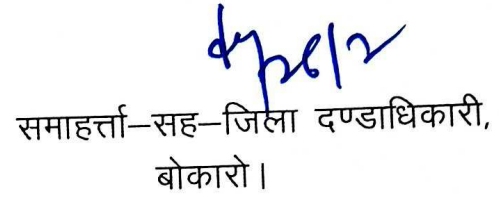 26/2
समाहर्त्ता–सह–जिला दण्डाधिकारी,
बोकारो।